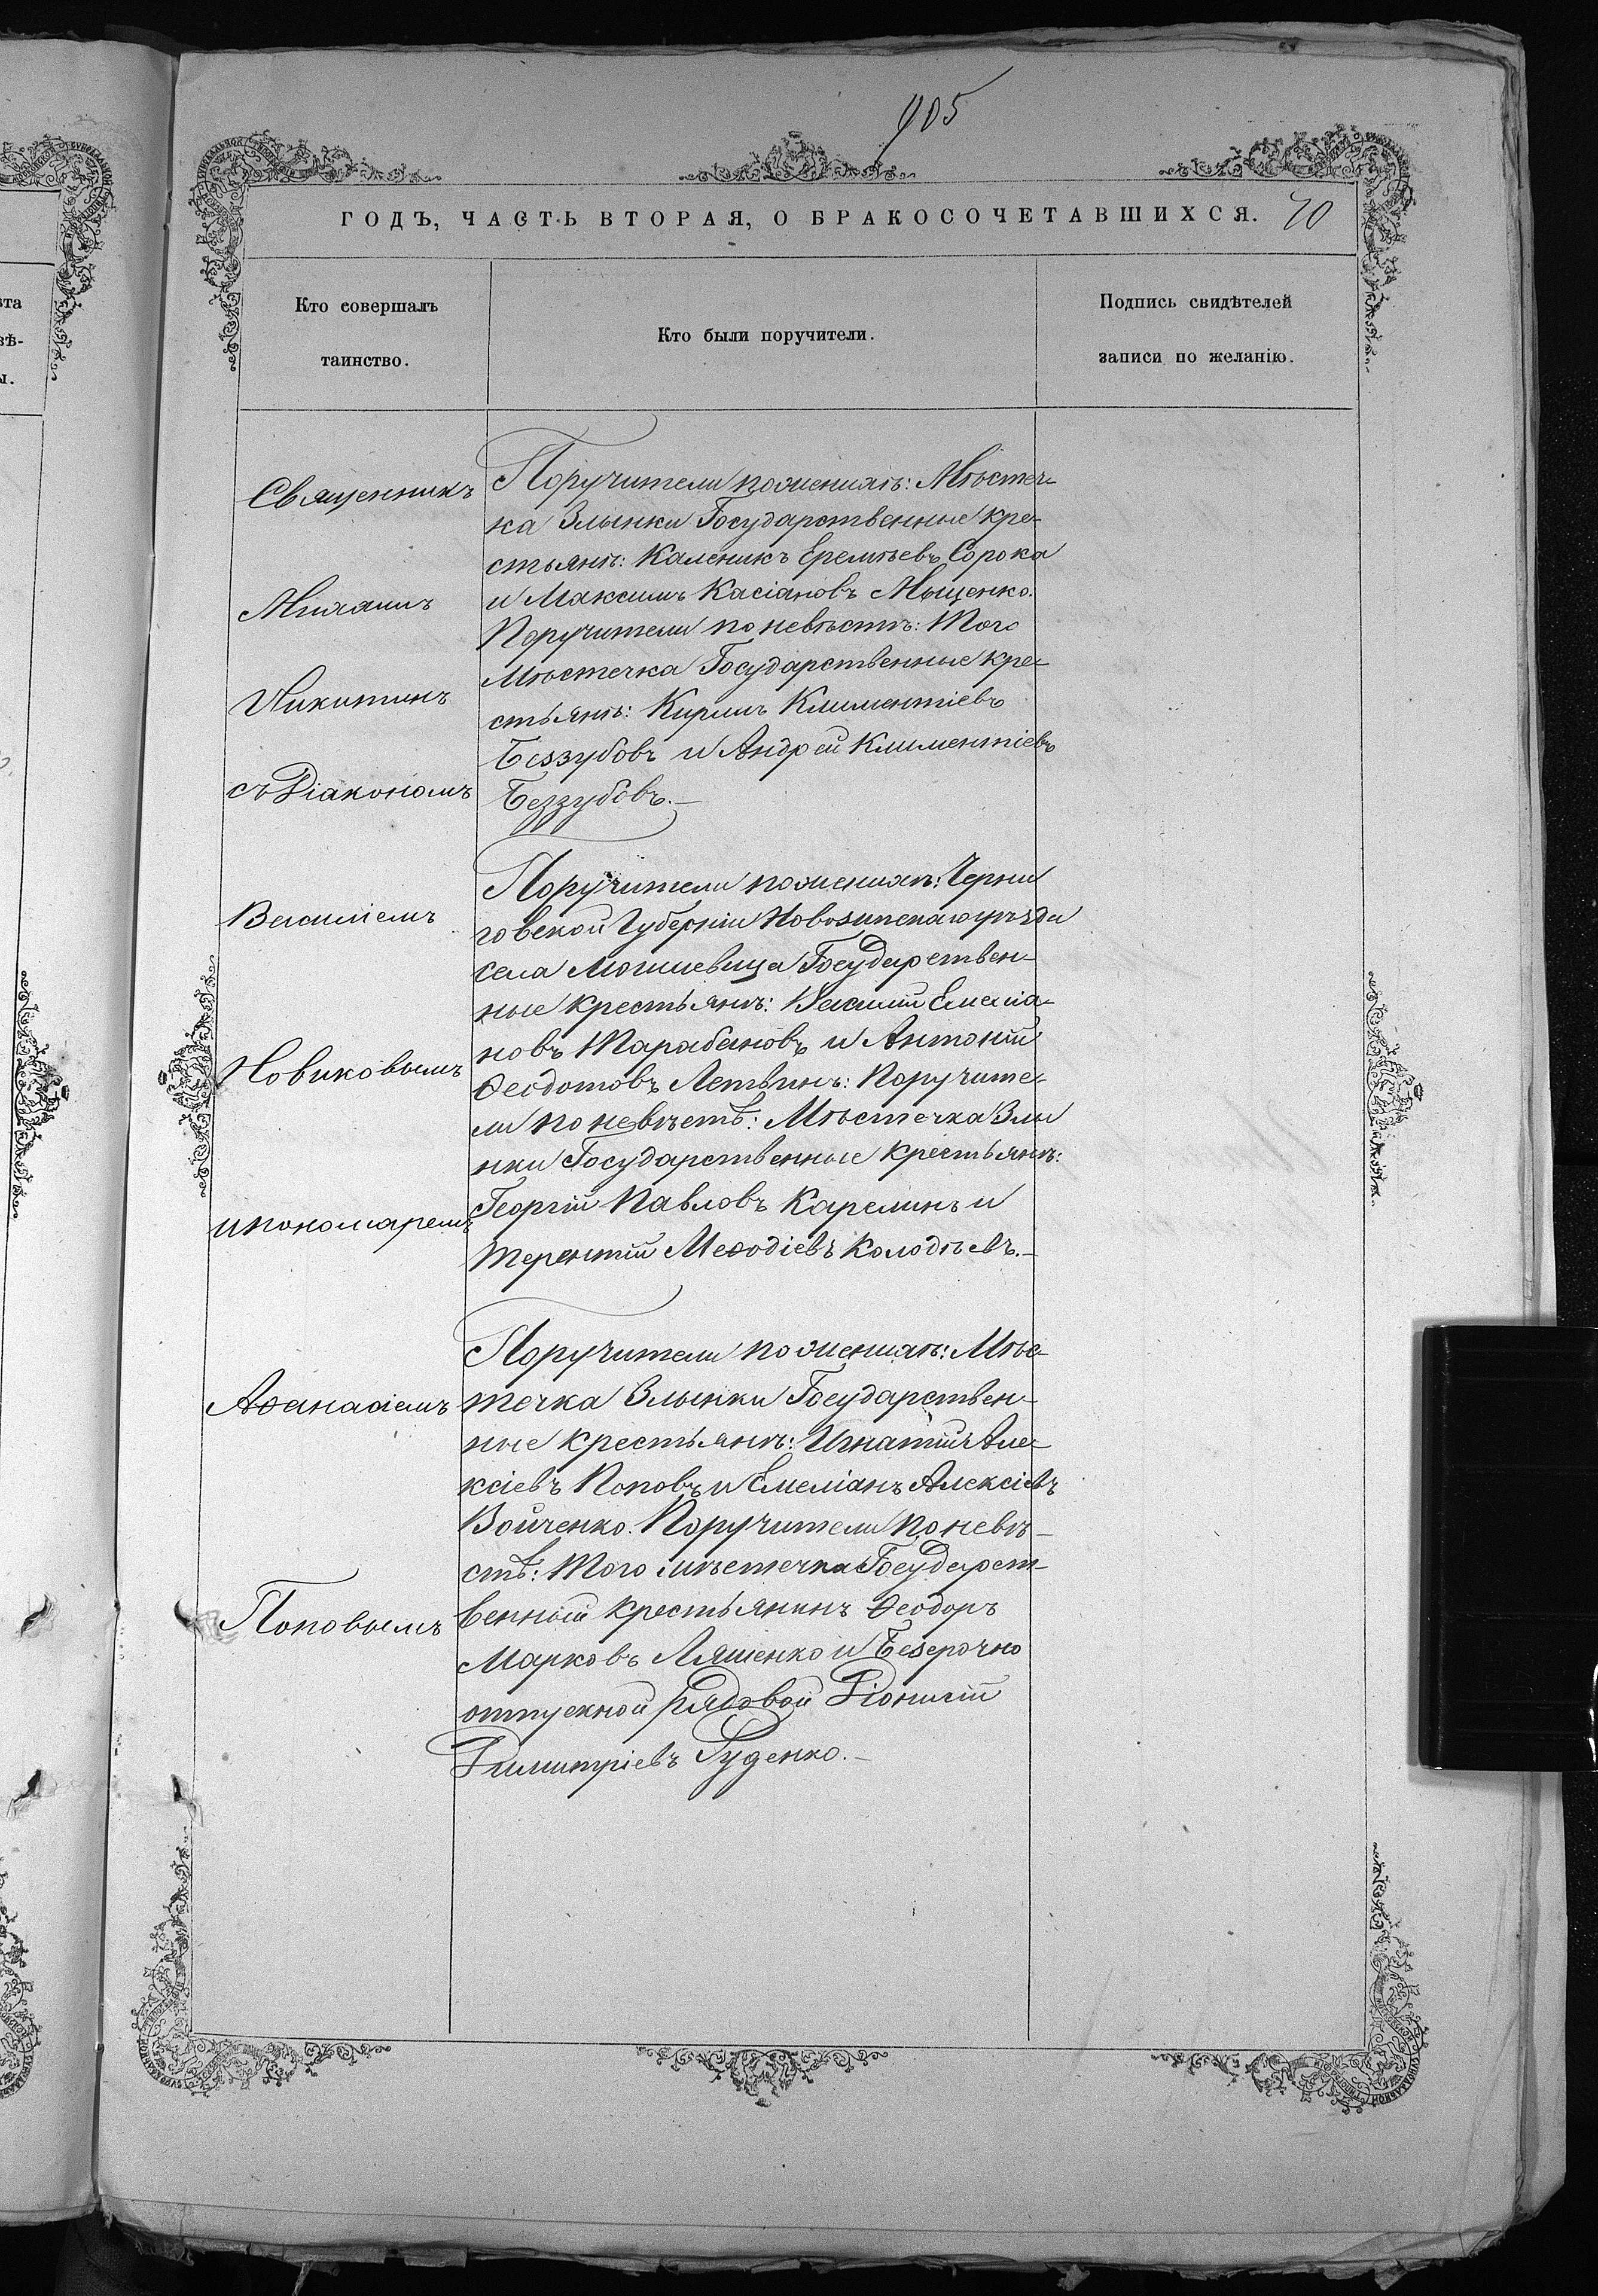 905
ГОДЪ, ЧАСТЬ ВТОРАЯ, О БРАКОСОЧЕТАВШИХСЯ. 70
Кто совершалъ
таинство.
Кто были поручители.
Подпись свидѣтелей
записи по желанію.
Священникъ
Никитинъ
съ Діакономъ
Василіемъ
Новиковымъ
и пономаремъ
Аѳанасіемъ
Поповымъ
Поручители по женихѣ: Мѣстеч-
ка Злынки Государственные кре-
стьянѣ: Каленикъ Еремѣевъ Сорока
и Максимъ Касіановъ Мощенко.
Поручители по невѣстѣ: Того
Мѣстечка Государственные кре-
стьянѣ: Кирилъ Климентіевъ
Беззубовъ и Андрей Климентіевъ
Беззубовъ.—
Поручители по женихѣ: Черни
говской Губерніи Новозыпскаго уѣзда
села Государствен-
ные крестьянѣ: Василій Емелiа-
новъ Тарабановъ и Антоній
Ѳеодотовъ Летвинъ: Поручите-
ли по невѣстѣ: Мѣстечка Злы
нки Государственные крестьянѣ:
Георгій Павловъ Карелинъ и
Терентій Меѳодіевъ Колодѣевъ.—
Поручители по женихѣ: Мѣс-
течка Злынки Государствен-
ные крестьянѣ: Игнатій Але-
ксіевъ Поповъ и Емеліанъ Алексіевъ
Войченко. Поручители по невѣ-
стѣ: Того мѣстечка Государст-
венный крестьянинъ Ѳеодоръ
Марковъ Ляшенко и Безсрочно
отпускной рядовой Діонисій
Димитріевъ Руденко.—
ѣта
вѣ-
ы.